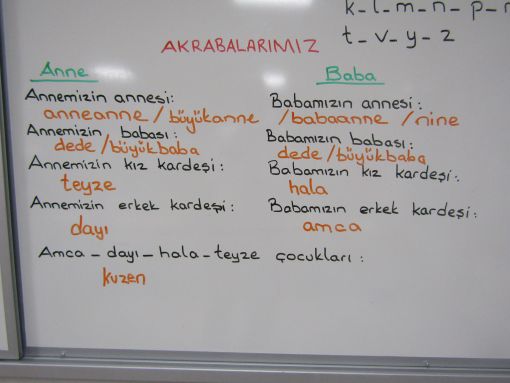 k_l_m_n_p_
t_v_y_z
AKRABALARIMIZ
Anne
Annemizin annesi:
anneanne/büyükanne
Annemizin babası:
dede/büyükbaba
Annemizin kız kardeşi:
teyze
Annemizin erkek kardeşi:
dayı
Baba
Babamızın annesi:
/babaanne/nine
Babamızın babası:
dede/büyükbaba
Babamızın kız kardeşi:
hala
Babamızın erkek kardeşi:
amca
Amca_dayı_hala_teyze çocukları:
kuzen